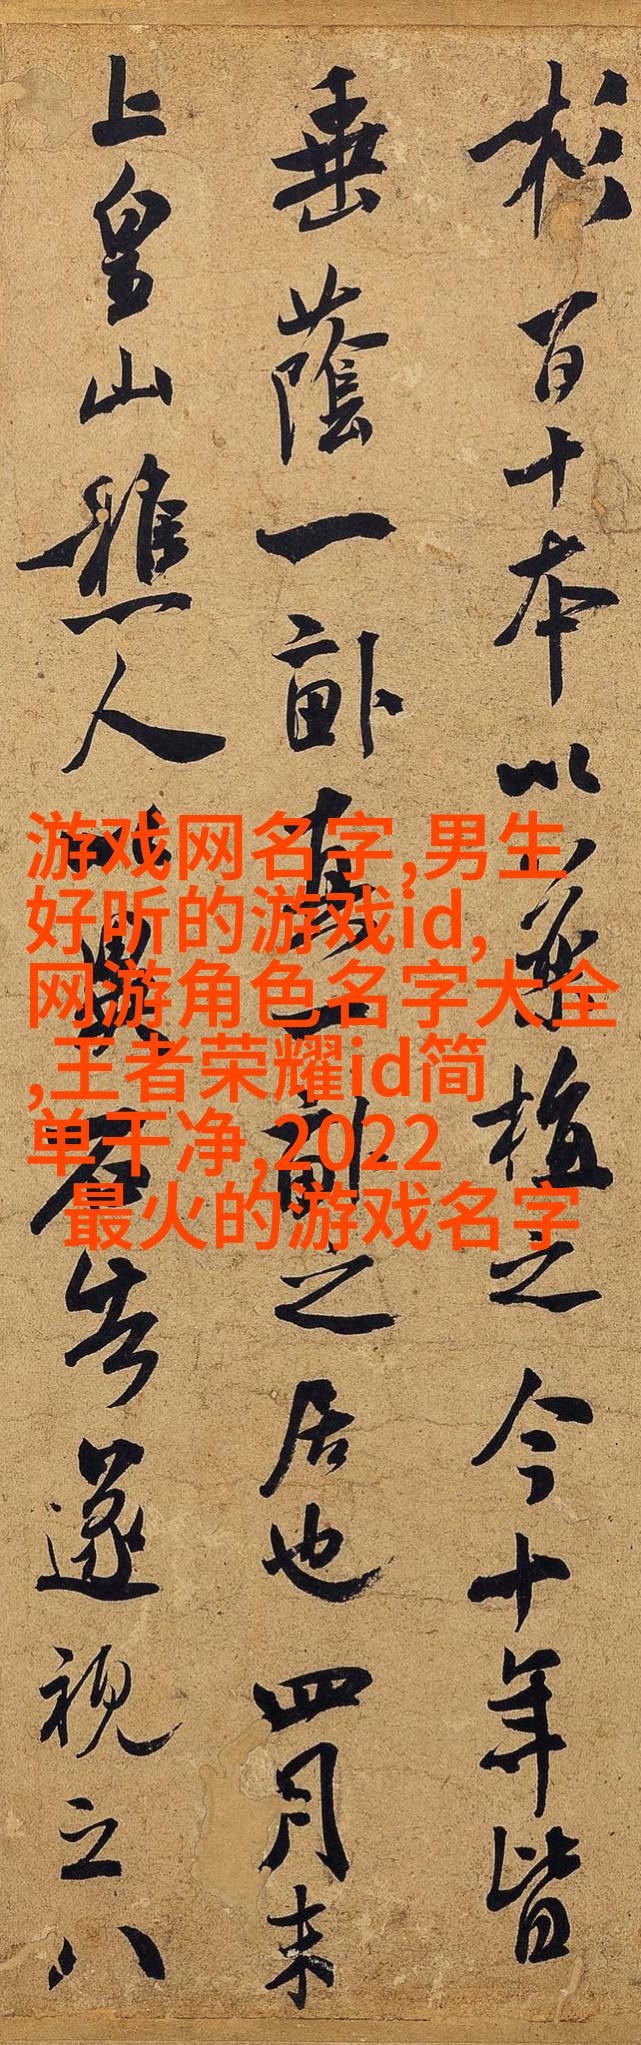 杉百十本以植之今十年皆
垂蔭一畝真一畝之居也四月末
上皇山樵人以異石告遂視之八
游戏网名字,男生
好听的游戏id,
网游角色名字大全
,王者荣耀id简
单干净,2022
最火的游戏名字